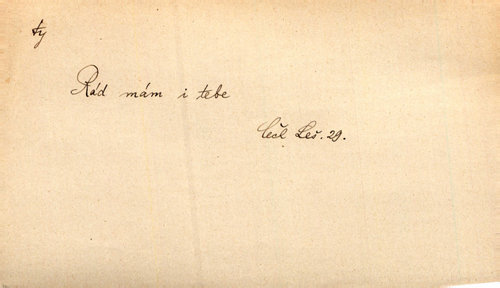 ty
Rád mám i tebe
Čečl. Leš. 29.